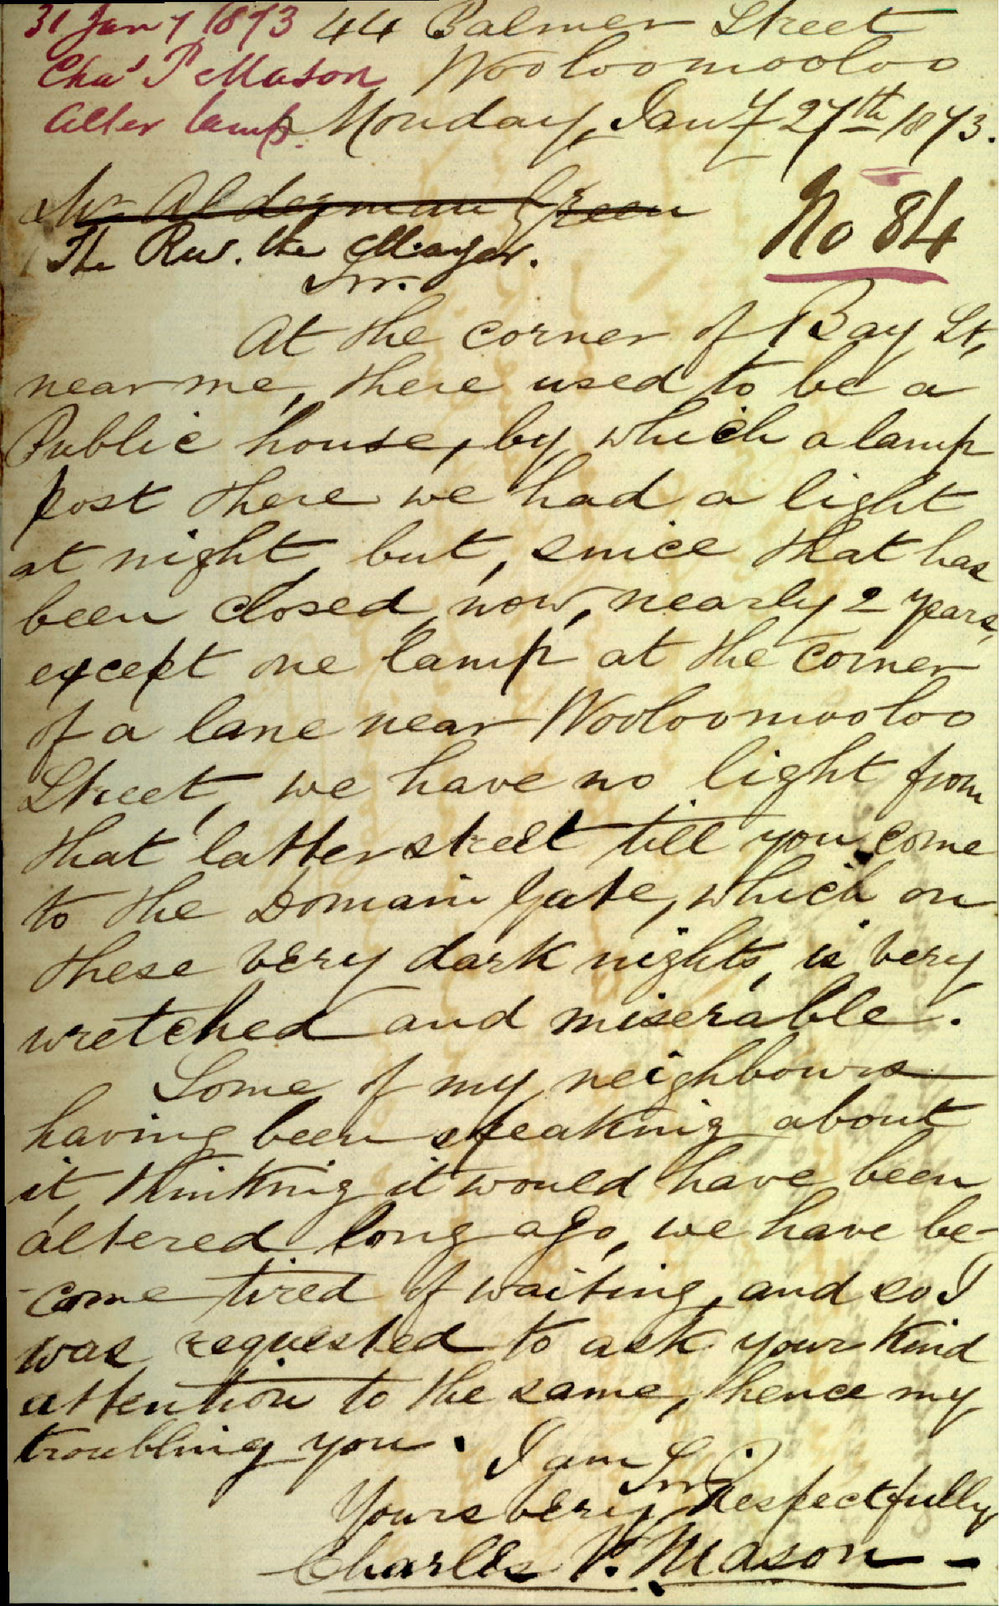 31 Jany 1873 44 Palmer Street
Chas P Mason Wooloomooloo
alter lamp. Monday, Jany 27th 1873.
Mr Alderman Green
No 84
The Rev. the Mayor.
Sir.
At the corner of Bay St,
near me, there used to be a
Public house, by which a lamp
post there we had a light
at night, but, since that has
been closed, now, nearly 2 years,
except one lamp at the corner
of a lane near Wooloomooloo
Street, we have no light from
that latter street till you come
to the Domain Gate, which on
these very dark nights, is very
wretched and miserable.
Some of my neighbours
having been speaking about
it, thinking it would have been
altered long ago, we have be-
-come tired of waiting, and so I
was requested to ask your kind
attention to the same, hence my
troubling you.
I am Sir,
Yours very Respectfully
Charles P. Mason